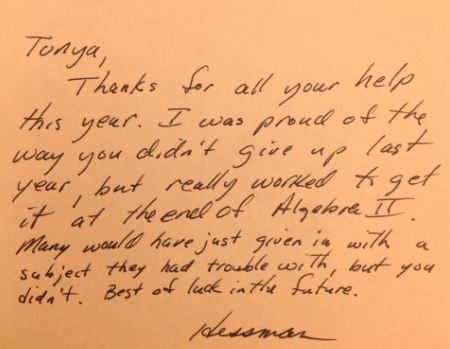 Tonya,
Thanks for all your help
this year. I was proud of the
way you didn't give up last
year, but really worked to get
it at the end of Algebra II.
Many would have just given in with a
subject they had trouble with, but you
didn't. Best of luck in the future.
Hessman